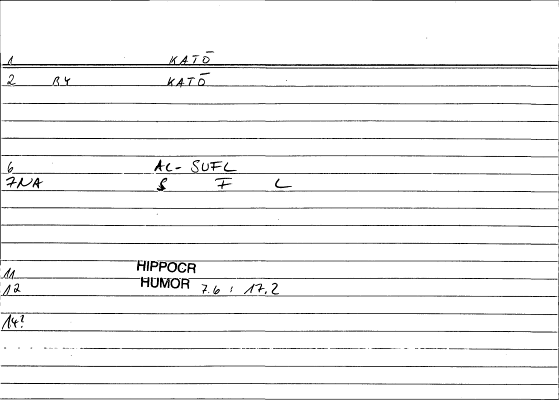 1 KATŌ
2 BY KATŌ
6 AL-SUFL
7NA S F L
11 HIPPOCR
12 HUMOR 7.6 : 17.2
14?